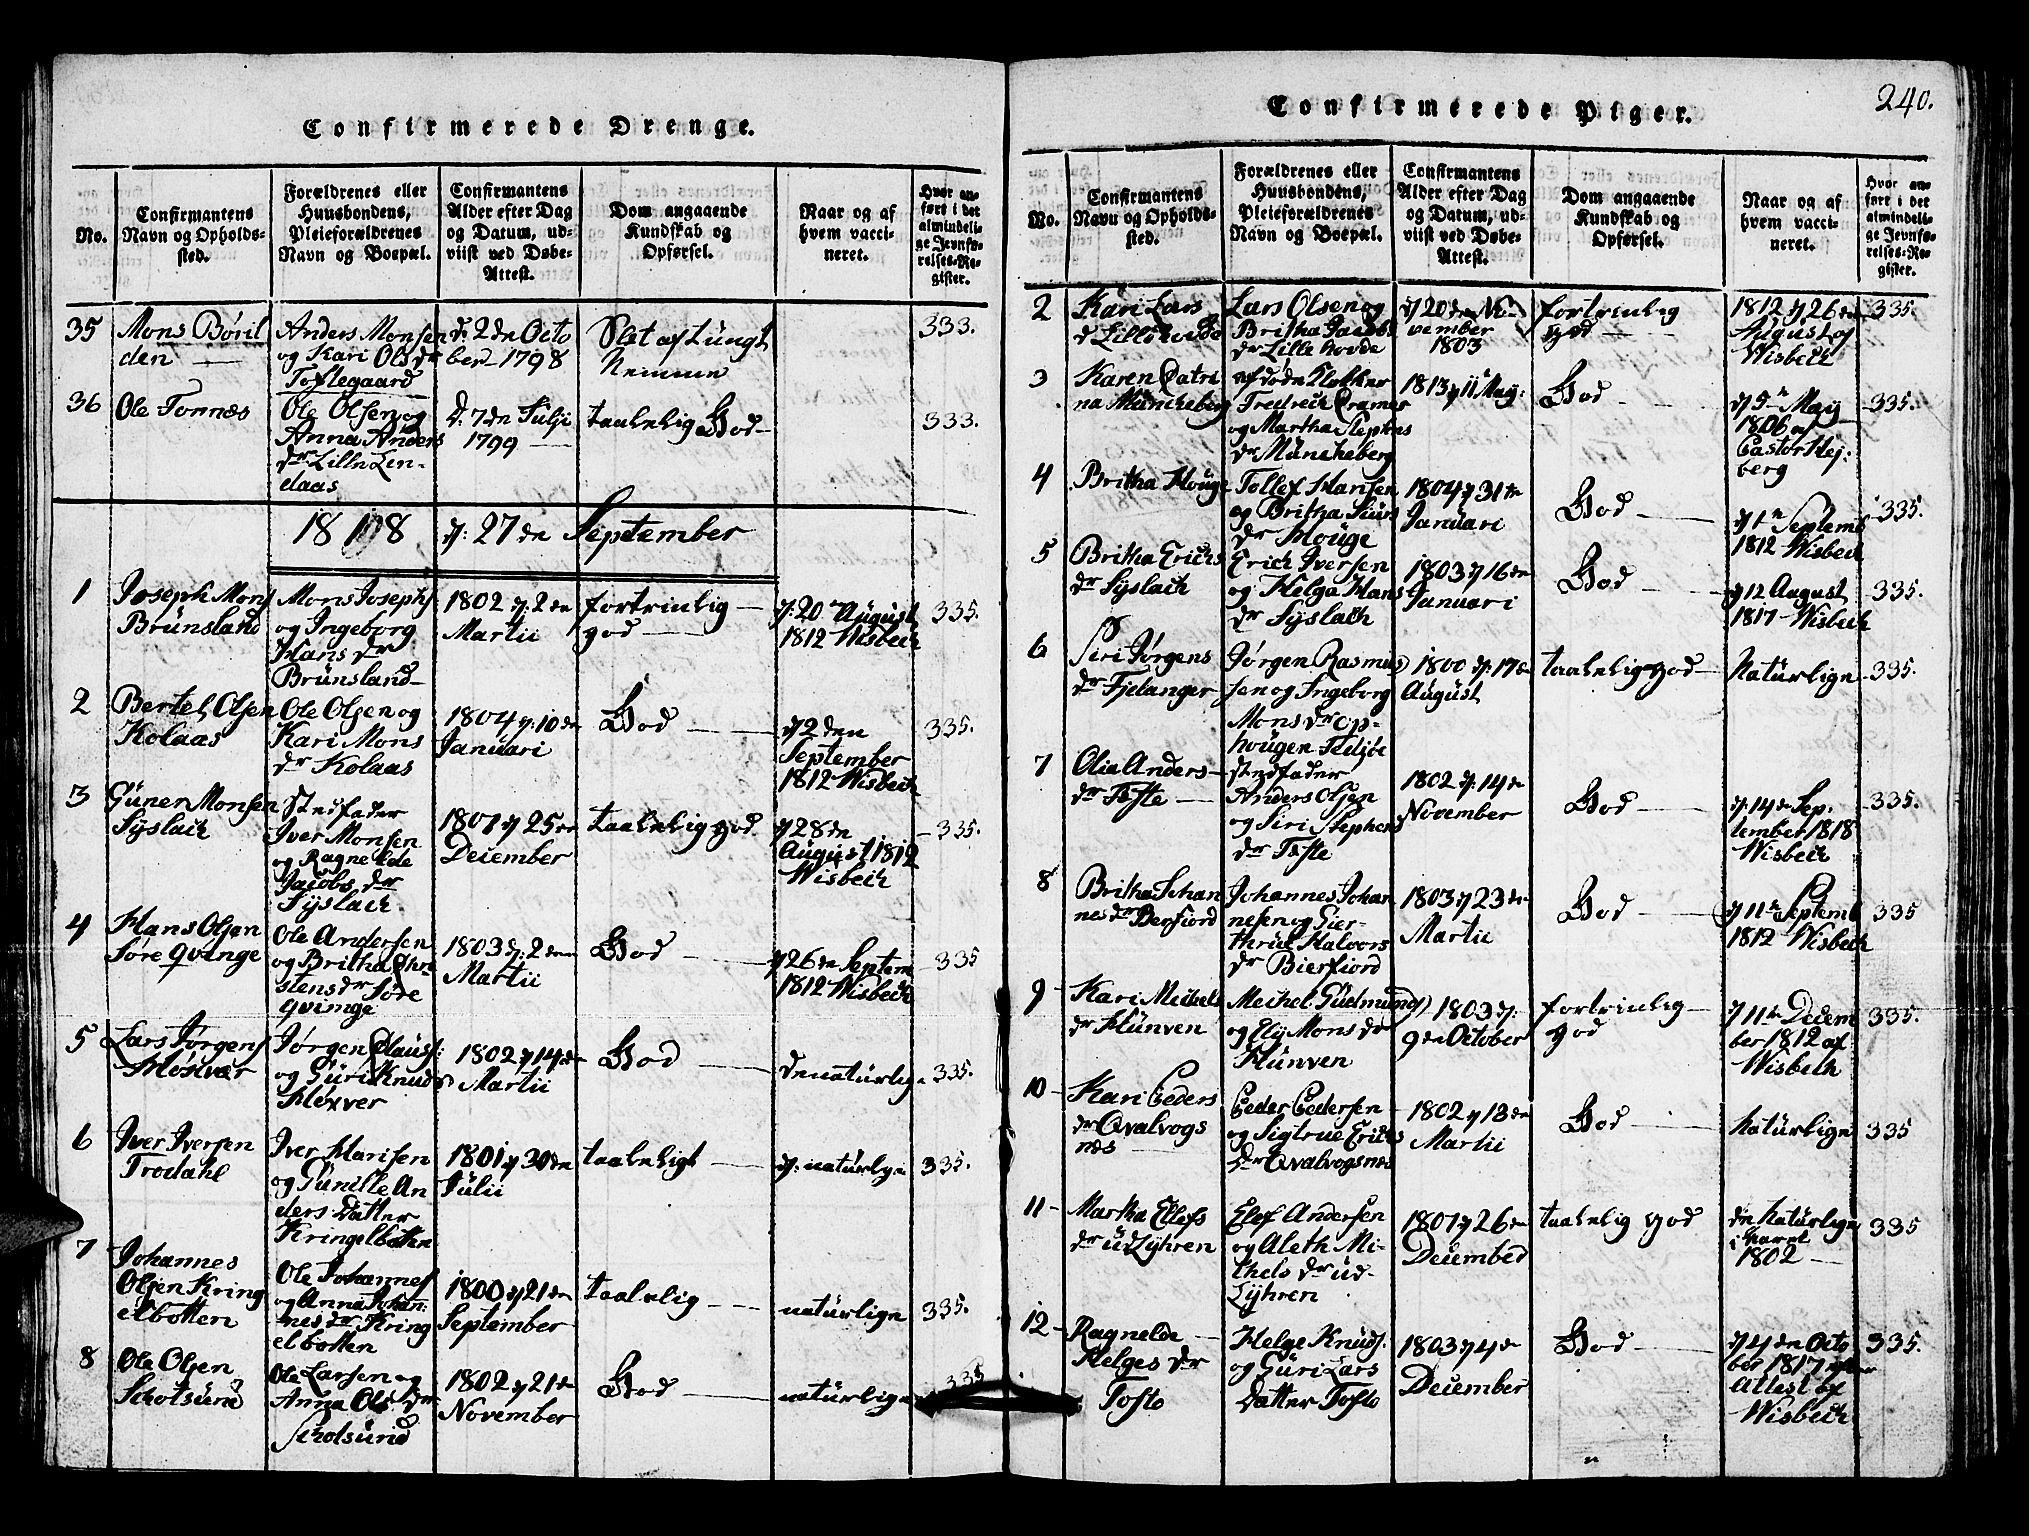 Confirmerede Drenge.
No.
Confirmantens
Navn og Opholds-
sted.
Forældrenes eller
Huusbondens,
Pleieforældrenes
Navn og Boepæl.
Confirmantens
Alder efter Dag
og Datum, ud-
viist ved Døbe-
Attest.
Dom angaaende
Kundskab og
Opførsel.
Naar og af
hvem vacci-
neret.
Hvor an-
ført i det
almindeli-
ge Jevnfø-
relses-Re-
gister.
35
Mons Böril
den
Anders Monsen
og Kari Ols dr
Toftegaard
d. 2den Octo
ber 1798
Slet af tungt
Nemme
333.
36
Ole Tonnæs
Ole Olsen og
Anna Anders
dr Lille Len-
daas
d. 7de Julji
1799
taalelig God
333.
1818 d: 27de September
1
Joseph Mons
Brunsland
Mons Josephs
og Ingeborg
Hans dr
Brunsland
1802 d: 2de
Martii
fortrinlig
god
d: 20de August
1812 Wisbech
335.
2
Bertel Olsen
Kolaas
Ole Olsen og
Kari Mons
dr Kolaas
1804 d: 10de
Januari
God
d 2den
September
1812 Wisbech
335.
3
Guner Monsen
Syslach
Stedfader
Iver Monsen
og Ragnelde
Jacobs dr
Syslach.
1801 d 25de
December
taalelig god
d 28de
August 1812
Wisbech
335.
4
Hans Olsen
Söre Qvinge
Ole Andersen
og Britha Chri
stens dr Söre
Qvinge
1803 d: 2den
Martii
God
d 26de Septem
1812 Wisbech
335
5
Lars Jörgens
Möxvær
Jörgen Clausf:
og Guri Knuds
Möxver
1802 d 14de
Martii
God
de naturlige
335.
6
Iver Iversen
Trodahl
Iver Hansen
og Gunille An
ders Datter
Kringelbotten
1801 d 30de
Julii
taaleligt
d: naturlige
335.
7
Johannes
Olsen Kring
elbotten
Ole Johannes
og Anna Johan
nes dr Kring
elbotten
1800 d 21de
September
taalelig
naturlige
335.
8
Ole Olsen
Schotsund
Ole Larsen og
Anna Ols dr
Schotsund
1802 d 21de
November
God
naturlige
335
Confirmerede Piger.
240.
No.
Confirmantens
Navn og Opholds-
sted.
Forældrenes eller
Huusbondens,
Pleieforældrenes
Navn og Boepæl.
Confirmantens
Alder efter Dag
og Datum, ud-
viist ved Døbe-
Attest.
Dom angaaende
Kundskab og
Opførsel.
Naar og af
hvem vacci-
neret.
Hvor an-
ført i det
almindeli-
ge Jevnfø-
relses-Re-
gister.
2
Kari Lars
dr Lillehovde
Lars Olsen og
Britha Jacobs
dr Lillehovde
d 20de No
vember
1803
fortrinlig
god
1812 d 26de
August af
Wisbech
335.
3
Karen Catri
na Müncheberg
afdöde Klokker
Fredrech Cramer
og Martha Stephens
dr Müncheberg
1813 d 11 May:
God
d 5te May
1806 af
Pastor Hej-
berg
335.
4
Britha Houge
Tollef Hansen
og Britha Siurs
dr Houge
1804 d 31te
Januari
God
d 1te Septemb
1812 Wisbech
335.
5
Britha Erichs
dr Syslach
Erich Iversen
og Helga Hans
dr Syslach
1803 d 16de
Januari
God
d 12 August
1817 Wisbech
335.
6
Siri Jörgens
dr Fjelanger
Jörgen Rasmus
sen og Ingeborg
Mons dr Op-
hougen Fedjöe
1800 d: 17de
August
taalelig god
Naturlige
335.
7
Olia Anders
dr Tofte
stedfader
Anders Olsen
og Siri Stephens
dr Tofte
1802 d: 14de
November
God
d: 14de Sep.
tember 1818
Wisbech
335.
8
Britha Johan
nes dr Berfiord
Johannes Johan
nesen og Gier-
thrud Halvors
dr Bierfiord
1803 d 23de
Martii
God
d 11te Septemb
1812 Wisbech
335
9
Kari Michels
dr Hunven
Michel Gudmunds
og Ely Mons dr
Hunven
1803 d:
9de October
fortrinlig
god
d 11te Decem
ber 1812 af
Wisbech
335.
10
Kari Peders
dr Qvalvogs
næs
Peder Pedersen
og Sigtrue Erichs
dr Qvalvogsnæs
1802 d 13de
Martii
God
Naturlige
335
11
Martha Ellefs
dr Udlyhren
Elef Andersen
og Aleth Mi-
chels dr Ud-
Lyhren
1801 d 26de
December
taalelig god
de Naturlige
i Aaret
1802
335
12
Ragnelde
Helges dr
Tofto
Helge Knuds:
og Guri Lars
Datter Tofto
1803 d 4de
December
God
d 4de Octo
ber 1817 efter
Attest af
Wisbech
335.